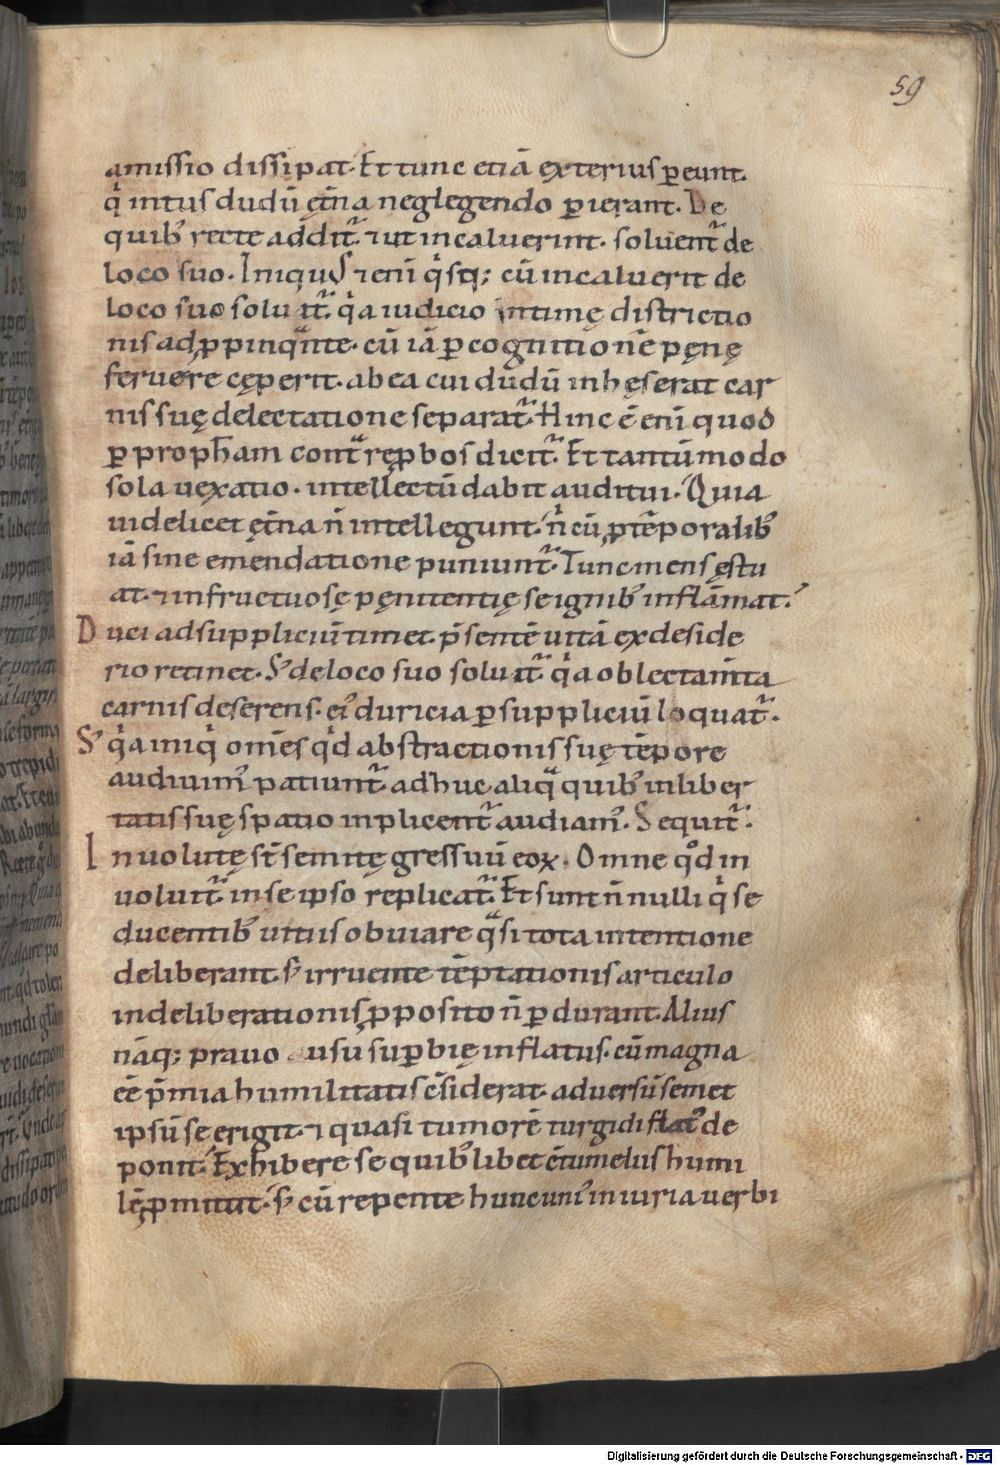 59
amissio dissipat. Et tunc etiā exterius ꝑeunt.
qͥ intus dudū ęt̄na neglegendo ꝑierant. De
quibꝰ recte addit᷑. ⁊ ut incaluerint. soluent᷑ de
loco suo. Iniquus ⁊eni̅ qͥsq; cū incaluerit de
loco suo soluit᷑. qͥa iudicio intimę districtio
nis adꝓpinqͣnte. cū iā ꝑ cognitionē pęnę
feruere cęperit. ab ea cui dudū inhęserat car
nis suę delectatione separat᷑. Hinc ē eni̅ quod
ꝑ propħam contͣ ręꝓbos dicit᷑. Et tantūmodo
sola uexatio. intellectū dabit auditui. Quia
uidelicet ęt̄na n̄ intellegunt. n̄ cū ꝓ tēporalibꝰ
iā sine emendatione puniunt᷑. Tunc mens ęstu
at. ⁊ infructuosę pęnitentię se ignibꝰ inflāmat.
Duci ad suppliciū timet. p̄sentē uitā ex deside
rio retinet. Sꝫ de loco suo soluit᷑. qͥa oblectam̄ta
carnis deserens. eiꝰ duricia ꝑ suppliciū loquat᷑.
Sꝫ qͥa iniqͥ om̄es qͥd abstractionis suę tēpore
audiuimꝰ patiunt᷑. adhuc aliqͣ quibꝰ in liber
tatis suę spatio inplicent᷑ audiamꝰ. Sequit᷑.
Inuolutę st̄ semitę gressuū eoꝝ. Omne qͦd in
uoluit᷑. in se ipso replicat᷑. Et sunt n̄nulli qͥ se
ducentibꝰ uitiis obuiare qͣsi tota intentione
deliberant. sꝫ irruente tēptationis articulo
in deliberationis ꝓposito n̄ ꝑdurant. Alius
nāq; prauo usu suꝑbię inflatus. cū magna
eē p̄mia humilitatis c̄siderat. aduersū semet
ipsū se erigit. ⁊ quasi tumorē turgidi flatꝰ de
ponit. Exhibere se quibꝰlibet c̄tumeliis humi
lē ꝓmittit. sꝫ cū repente hunc uniꝰ iniuria uerbi
Digitalisierung gefördert durch die Deutsche Forschungsgemeinschaft - DFG